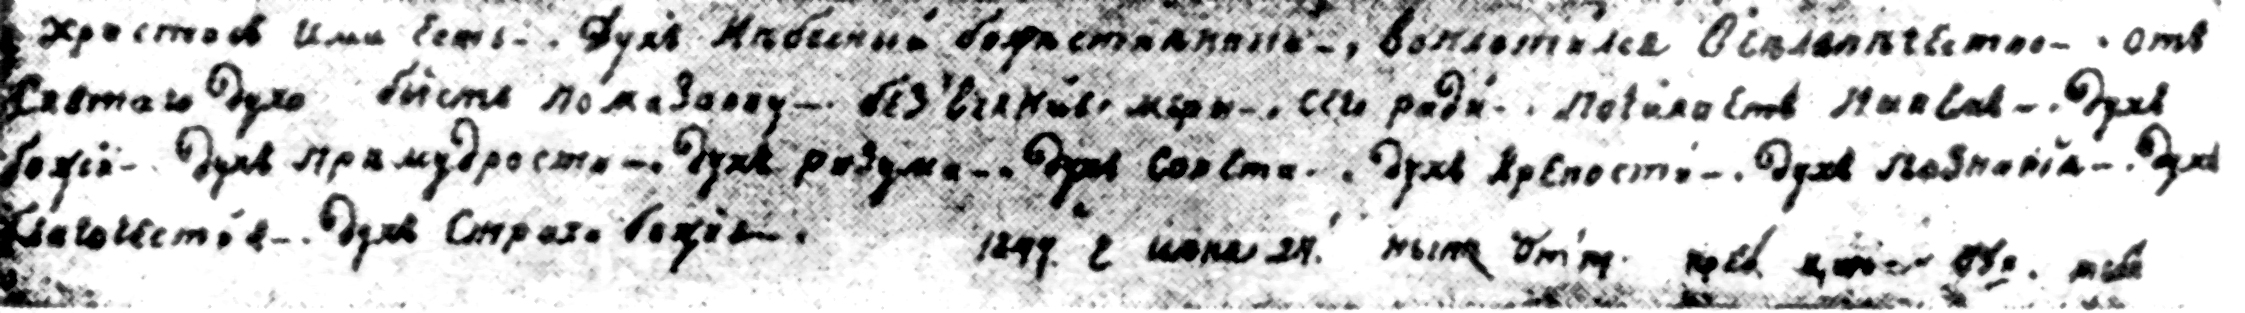 Христосъ Има есть-. Духъ Небесный божественный-, воплотился в человѣчество-. отъ
Святаго духа бысть помазану-. безъ всякiя мѣры-. сего ради-. почиваетъ на немъ-. Духъ
божiй-. Духъ премудрости-. духъ разума-. Духъ Совета-. духъ крепости-. Духъ познанiя-. Духъ
благочестiя-. Духъ Страха божiя-. июня 27.